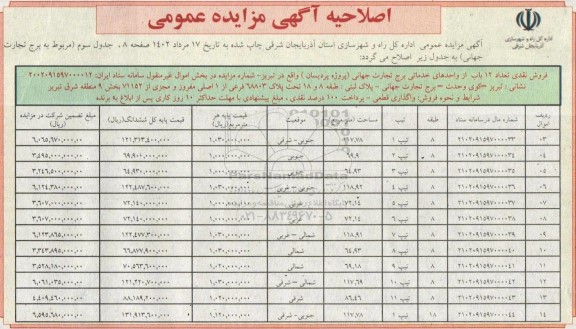 اصلاحیه آگهی مزایده عمومی
اداره کل راه و شهرسازی
آذربایجان شرقی
آگهی مزایده عمومی اداره کل راه و شهرسازی استان آذربایجان شرقی چاپ شده به تاریخ ۱۷ مرداد ۱۴۰۲ صفحه ۸، جدول سوم (مربوط به برج تجارت
جهانی) به جدول زیر اصلاح می گردد:
فروش نقدی تعداد ۱۲ باب از واحدهای خدماتی برج تجارت جهانی (پروژه پردیسان) واقع در تبریز- شماره مزایده در بخش اموال غیرمنقول سامانه ستاد ایران: ۲۰۰۲۰۹۱۵۹۷۰۰۰۰۱۲
نشانی: تبریز -کوی وحدت – برج تجارت جهانی – پلاک ثبتی: طبقه ۸ و ۱۸ تحت پلاک ۶۸۸۱۳ فرعی از ۱ اصلی مفروز و مجزی از ۷۱۱۵۲ بخش ۹ منطقه شرق تبریز
شرایط و نحوه فروش: واگذاری قطعی – پرداخت ۱۰۰ درصد نقدی، مبلغ پیشنهادی با مهلت حداکثر ۱۰ روز کاری پس از ابلاغ به برنده
ردیف اموال | شماره مال در سامانه ستاد | طبقه | تیپ | مساحت | موقعیت | قیمت پایه هر مترمربع(ریال) | قیمت پایه کل ششدانگ(ریال) | مبلغ تضمین شرکت در مزایده (ریال)
۰۳ | ۲۱۰۲۰۹۱۵۹۷۰۰۰۰۳۳ | ۸ | تیپ ۱ | ۱۱۷.۷۸ | جنوبی – شرقی | ۱,۰۳۰,۰۰۰,۰۰۰ | ۱۲۱,۳۱۳,۴۰۰,۰۰۰ | ۶,۰۶۵,۶۷۰,۰۰۰.۰۰
۰۴ | ۲۱۰۲۰۹۱۵۹۷۰۰۰۰۳۴ | ۸ | تیپ ۲ | ۶۹.۹ | ۱,۰۰۰,۰۰۰,۰۰۰ | ۶۹,۹۰۰,۰۰۰,۰۰۰ | ۳,۴۹۵,۰۰۰,۰۰۰.۰۰
۰۵ | ۲۱۰۲۰۹۱۵۹۷۰۰۰۰۳۵ | ۸ | تیپ ۳ | ۶۴.۹۳ | ۱,۰۰۰,۰۰۰,۰۰۰ | ۶۴,۹۳۰,۰۰۰,۰۰۰ | ۳,۲۴۶,۵۰۰,۰۰۰.۰۰
۰۶ | ۲۱۰۲۰۹۱۵۹۷۰۰۰۰۳۶ | ۸ | تیپ ۴ | ۱۱۸.۹۲ | جنوبی – غربی | ۱,۰۳۰,۰۰۰,۰۰۰ | ۱۲۲,۴۸۷,۶۰۰,۰۰۰ | ۶,۱۲۴,۳۸۰,۰۰۰.۰۰
۰۷ | ۲۱۰۲۰۹۱۵۹۷۰۰۰۰۳۷ | ۸ | تیپ ۵ | ۷۲.۱۴ | غربی | ۱,۰۰۰,۰۰۰,۰۰۰ | ۷۲,۱۴۰,۰۰۰,۰۰۰ | ۳,۶۰۷,۰۰۰,۰۰۰.۰۰
۰۸ | ۲۱۰۲۰۹۱۵۹۷۰۰۰۰۳۸ | ۸ | تیپ ۶ | ۷۲.۱۴ | غربی | ۱,۰۰۰,۰۰۰,۰۰۰ | ۷۲,۱۴۰,۰۰۰,۰۰۰ | ۳,۶۰۷,۰۰۰,۰۰۰.۰۰
۰۹ | ۲۱۰۲۰۹۱۵۹۷۰۰۰۰۳۹ | ۸ | تیپ ۷ | ۱۱۸.۹۱ | شمالی – غربی | ۱,۰۳۰,۰۰۰,۰۰۰ | ۱۲۲,۴۷۷,۳۰۰,۰۰۰ | ۶,۱۲۳,۸۶۵,۰۰۰.۰۰
۱۰ | ۲۱۰۲۰۹۱۵۹۷۰۰۰۰۴۰ | ۸ | تیپ ۸ | ۶۴.۹۳ | شمالی | ۱,۰۳۰,۰۰۰,۰۰۰ | ۶۶,۸۷۷,۹۰۰,۰۰۰ | ۳,۳۴۳,۸۹۵,۰۰۰.۰۰
۱۱ | ۲۱۰۲۰۹۱۵۹۷۰۰۰۰۴۱ | ۸ | تیپ ۹ | ۶۹.۱۸ | شمالی | ۱,۰۲۰,۰۰۰,۰۰۰ | ۷۰,۵۶۳,۶۰۰,۰۰۰ | ۳,۵۲۸,۱۸۰,۰۰۰.۰۰
۱۲ | ۲۱۰۲۰۹۱۵۹۷۰۰۰۰۴۲ | ۸ | تیپ ۱۰ | ۱۱۷.۶۹ | شمالی – شرقی | ۱,۰۳۰,۰۰۰,۰۰۰ | ۱۲۱,۲۲۰,۷۰۰,۰۰۰ | ۶,۰۶۱,۰۳۵,۰۰۰.۰۰
۱۳ | ۲۱۰۲۰۹۱۵۹۷۰۰۰۰۴۳ | ۸ | تیپ ۱۱ | ۸۶.۴۶ | شرقی | ۱,۰۲۰,۰۰۰,۰۰۰ | ۸۸,۱۸۹,۲۰۰,۰۰۰ | ۴,۴۰۹,۴۶۰,۰۰۰.۰۰
۱۴ | ۲۱۰۲۰۹۱۵۹۷۰۰۰۰۴۴ | ۱۸ | تیپ ۱ | ۱۱۷.۷۸ | جنوبی – شرقی | ۱,۱۲۰,۰۰۰,۰۰۰ | ۱۳۱,۹۱۳,۶۰۰,۰۰۰ | ۶,۵۹۵,۶۸۰,۰۰۰.۰۰
ParsNamadData
۰۲۱-۸۸۳۴۹۶۷۰-۵